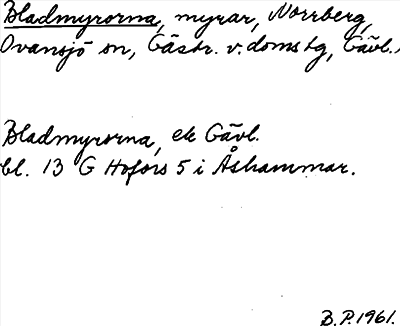 Bladmyrorna, myrar, Norrberg,
Ovansjö sn, Gästr. v. domstg, Gävl.
Bladmyrorna, ek Gävl.
bl. 13 G Hofors 5 i Åshammar.
B.P. 1961.